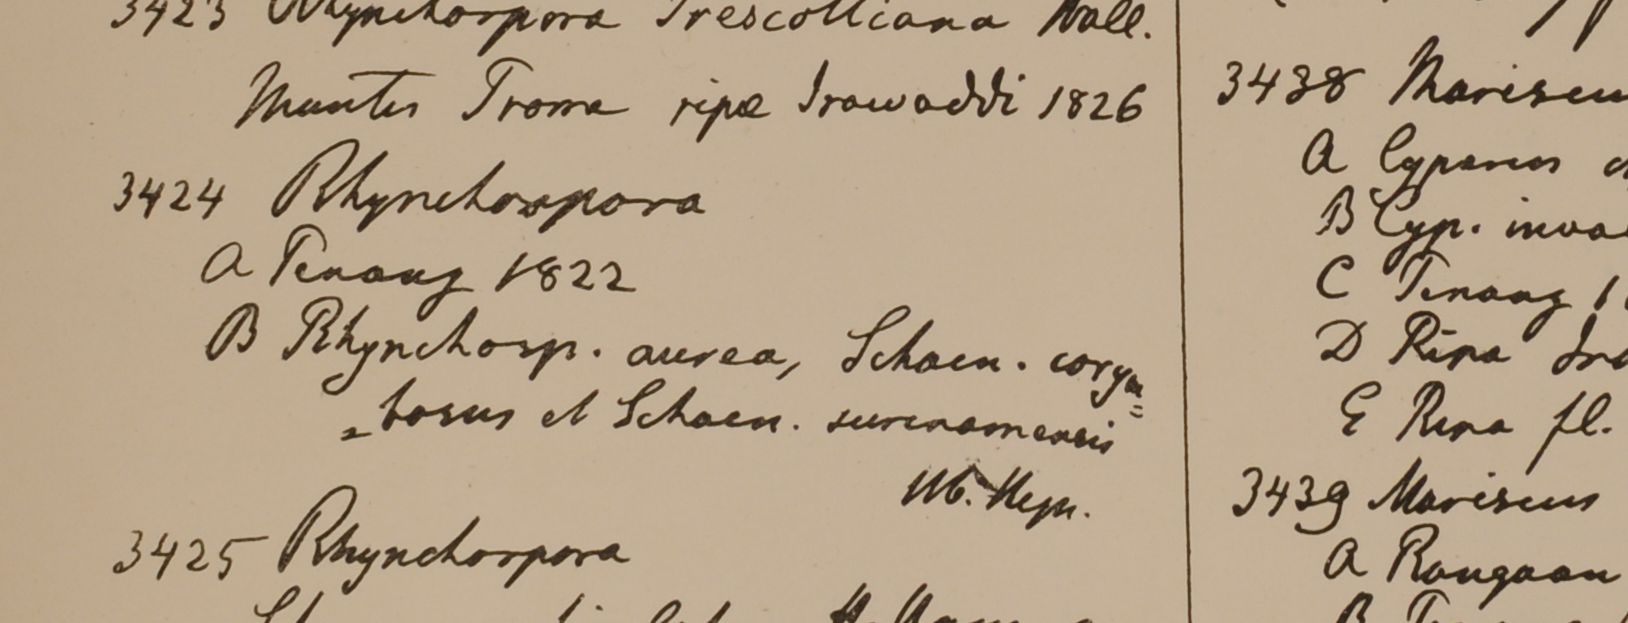 3423 Rhynchospora Prescottiana Wall.
Montes Prome ripæ Irawaddi 1826
3424 Rhynchospora
A Penang 1822
B Rhynchosp. aurea, Schaen. corym=
=bosus et Schaen. surenamensis
Hb. Heyn.
3425 Rhynchospora
3438 Mariscu
A Cyperus
B Cyp. invo
C Penang 1
D Ripa Ira
E Ripa fl.
3439 Mariscus
A Rangoon
B